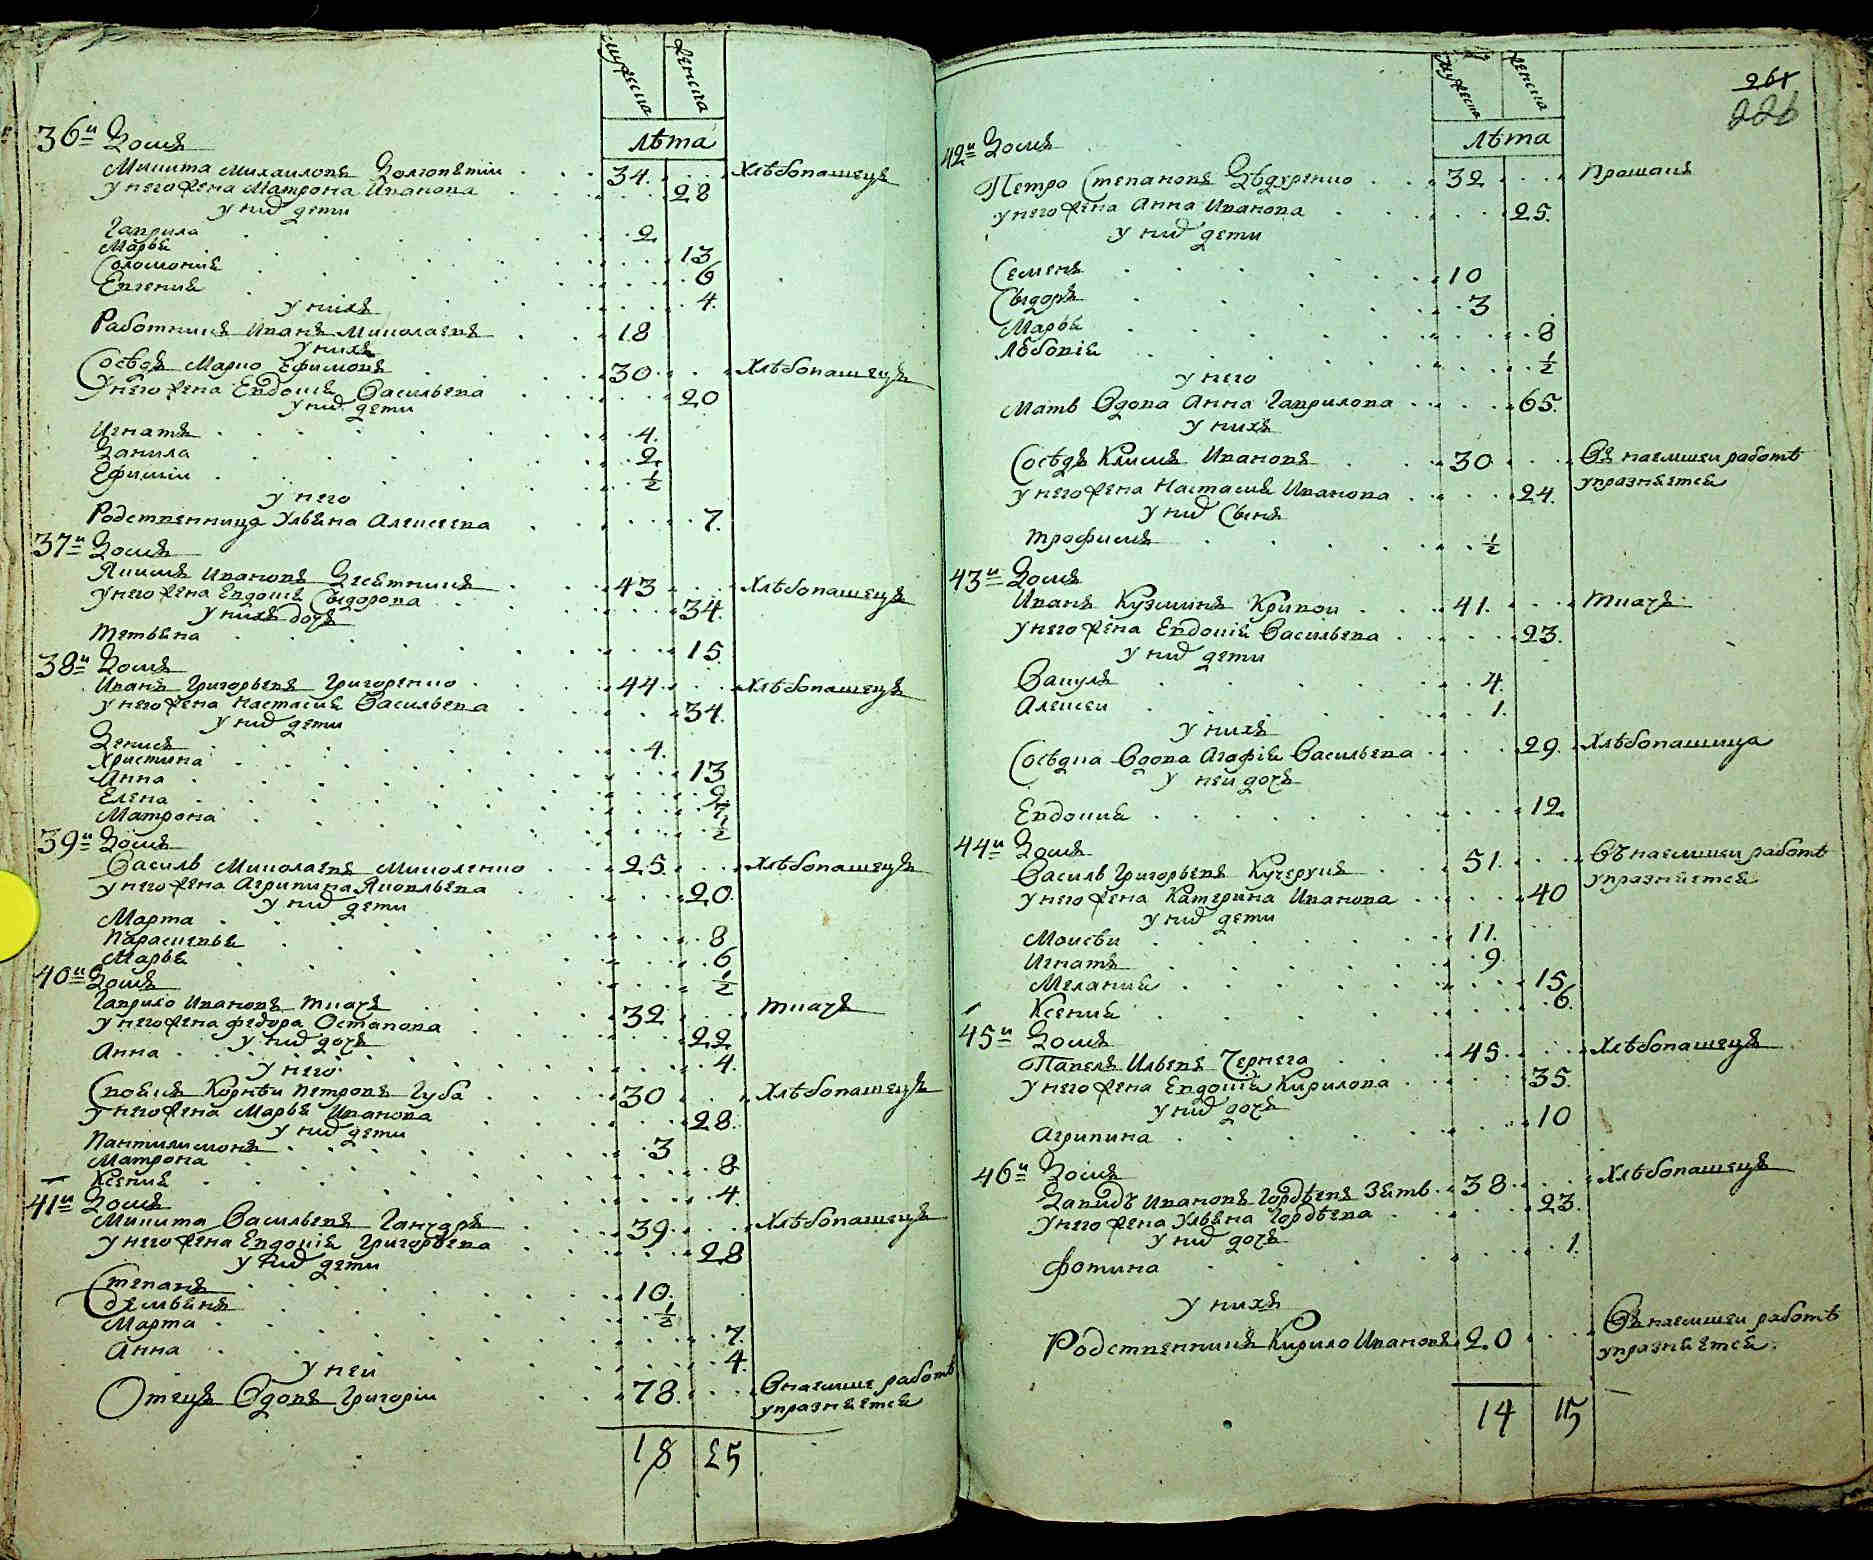 мужеска женска
лѣта
36и Домъ
Микита Михаиловъ Долгопятiи 34. Хлѣбопашецъ
у него жена Матрона Иванова 28
у них дети
Гаврила 2
Марья 13
Соломония 6
Евгения 4.
у нихъ
Работникъ Иванъ Миколаевъ 18
у нихъ
Сосѣдъ Марко Ефимовъ 30 Хлѣбопашецъ
у него жена Евдокия Васильева 20
у них дети
Игнатъ 4.
Данила 2
Ефимiи ½
у него
Родственница Ульяна Алексеева 7.
37и Домъ
Якимъ Ивановъ Десятникъ 43 Хлѣбопашецъ
у него жена Евдокия Сыдорова 34.
у нихъ дочь
Тетьяна 15
38и Домъ
Иванъ Григорьевъ Григоренко 44 Хлѣбопашецъ
у него жена Настасия Васильева 34.
у них дети
Денисъ 4.
Христина 13
Анна 9
Елена
Матрона ½
39и Домъ
Василь Миколаевъ Миколенко 25 Хлѣбопашецъ
у него жена Агрипина Яковльева 20.
у них дети
Марта 8
Параскевья 6
Марья ½
40и Домъ
Гаврило Ивановъ Ткачъ 32 Ткачъ
у него жена Федора Остапова 22
у них дочь
Анна 4.
у него
Свояк Корнѣи Петровъ Губа 30 Хлѣбопашецъ
у него жена Марья Иванова 28.
у них дети
Пантилимонъ 3
Матрона 8
Ксения 4.
41и Домъ
Микита Васильевъ Ганчаръ 39. Хлѣбопашецъ
у него жена Евдокiя Григорьева 28
у них дети
Степанъ 10.
Демьянъ ½
Марта 7.
Анна 4
у неи
Отецъ Вдовъ Григорiи 78. В наемше работѣ
упразняется
18 25
261
226
мужеска женска
лѣта
42и Домъ
Петро Степановъ Дѣдуренко 32 Прошакъ
у него жена Анна Иванова 25.
у них дети
Семенъ 10
Сыдоръ 3
Марья 8
Любовiя ½
у него
Мать Вдова Анна Гаврилова 65.
у нихъ
Сосѣдъ Климъ Ивановъ 30 Въ наемшеи работѣ
упразняется
у него жена Настасия Иванова 24.
у них Сынъ
Трофимъ ½
43и Домъ
Иванъ Кузминъ Кривои 41. Ткачъ
у него жена Евдокiя Васильева 23.
у них дети
Вакулъ 4.
Алексеи 1.
у нихъ
Сосѣдка Вдова Агафiя Васильева 29. Хлѣбопашица
у неи дочь
Евдокия 12
44и Домъ
Василь Григорьевъ Кучерукъ 51. Въ наемшеи работѣ
упразняется
у него жена Катерина Иванова 40
у них дети
Моисѣи 11.
Игнатъ 9
Мелания 15
Ксения 6.
45и Домъ
Павелъ Ильевъ Чернега 45. Хлѣбопашецъ
у него жена Евдокiя Кирилова 35.
у них дочь
Агрипина 10
46и Домъ
Давидъ Ивановъ Гордѣевъ Зять 38 Хлѣбопашецъ
у него жена Ульяна Гордѣева 23.
у них дочь
Фотина 1.
у нихъ
Родственникъ Кирило Ивановъ 20 Въ наемшеи работѣ
упразняется.
14 15